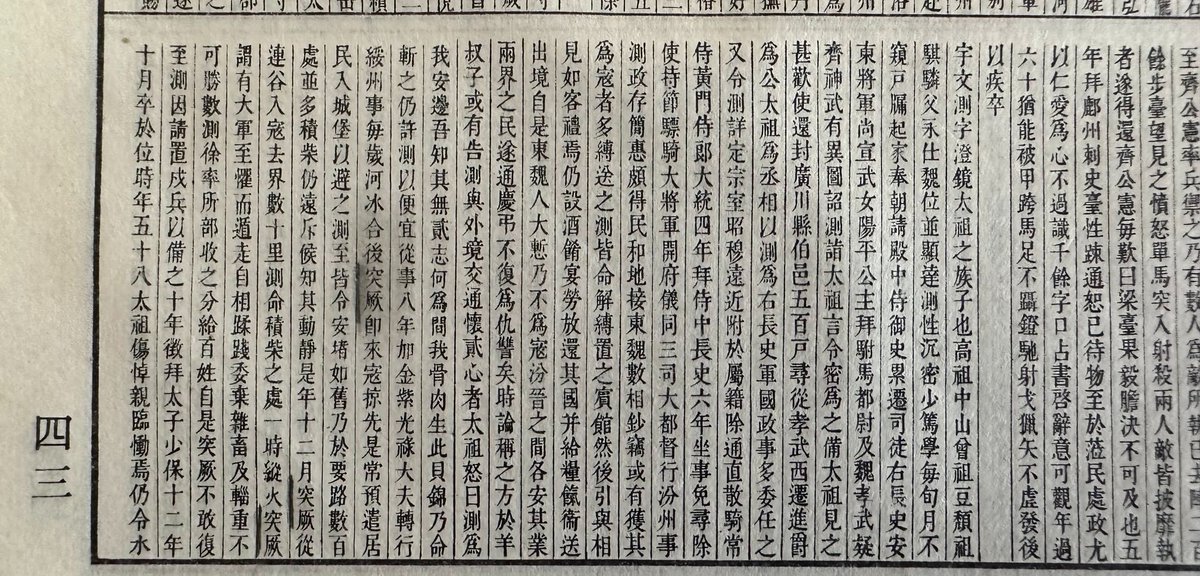 至齊公憲率兵之乃有數人爲敵所執已去
餘步臺望見之憤怒單馬突入射殺兩人敵皆披靡執
者遂得還齊公憲每歎曰梁臺果毅膽決不可及也五
年拜鄜州刺史臺性疎通恕已待物至於蒞民處政尤
以仁愛爲心不過識千餘字口占書啓辭意可觀年過
六十猶能被甲跨馬足不躡鐙馳射弋獵矢不虛發後
以疾卒
宇文測字澄鏡太祖之族子也高祖中山曾祖豆頽祖
騏驎父永仕魏位並顯達測性沉密少篤學每旬月不
窺戸牖起家奉朝請殿中侍御史累遷司徒右長史安
東將軍尚宣武女陽平公主拜駙馬都尉及魏孝武疑
齊神武有異圖詔測詣太祖言令密爲之備太祖見之
甚歡使還封廣川縣伯邑五百戸尋從孝武西遷進爵
爲公太祖爲丞相以測爲右長史軍國政事多委任之
又令測詳定宗室昭穆遠近附於屬籍除通直散騎常
侍黃門侍郎大統四年拜侍中長史六年坐事免尋除
使持節驃騎大將軍開府儀同三司大都督行汾州事
測政存簡惠頗得民和地接東魏數相鈔竊或有獲其
爲寇者多縛送之測皆命解縛置之賓館然後引與相
見如客禮焉仍設酒餚宴勞放還其國并給糧餼衞送
出境自是東魏人大慙乃不爲寇汾晉之間各安其業
兩界之民遂通慶弔不復爲仇讐矣時論稱之方於羊
叔子或有告測與外境交通懷貳心者太祖怒曰測爲
我安邊吾知其無貳志何爲間我骨肉生此貝錦乃命
斬之仍許測以便宜從事八年加金紫光祿大夫轉行
綏州事每歲河冰合後突厥即來寇掠先是常預遣居
民入城堡以避之測至皆令安堵如舊乃於要路數百
處並多積柴仍遠斥候知其動靜是年十二月突厥從
連谷入寇去界數十里測命積柴之處一時縱火突厥
謂有大軍至懼而遁走自相蹂踐委棄雜畜及輜重不
可勝數測徐率所部收之分給百姓自是突厥不敢復
至測因請置戍兵以備之十年徵拜太子少保十二年
十月卒於位時年五十八太祖傷悼親臨慟焉仍令水
四三